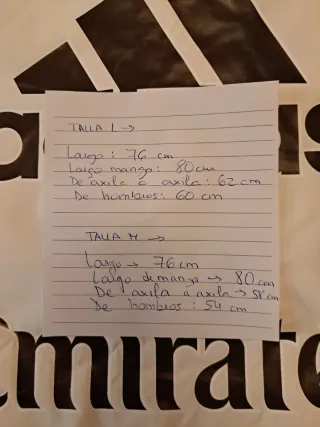 TALLA L →
Largo: 76 cm
Largo manga: 80 cm
De axila a axila: 62 cm
De hombros: 60 cm
TALLA M →
Largo → 76 cm
Largo de manga → 80 cm
De axila a axila → 58 cm
De hombros: 54 cm